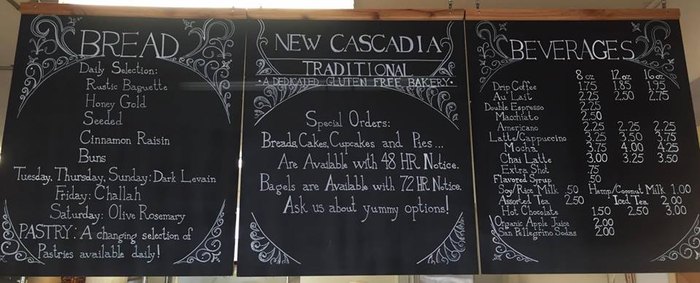 BREAD
Daily Selection:
Rustic Baguette
Honey Gold
Seeded
Cinnamon Raisin
Buns
Tuesday, Thursday, Sunday: Dark Levain
Friday: Challah
Saturday: Olive Rosemary
PASTRY: A changing selection of
Pastries available daily!
NEW CASCADIA
TRADITIONAL
· A DEDICATED GLUTEN FREE BAKERY ·
Special Orders:
Breads, Cakes, Cupcakes and Pies...
Are Available with 48 HR. Notice.
Bagels are Available with 72 HR. Notice.
Ask us about yummy options!
BEVERAGES
8 oz 12 oz 16 oz
Drip Coffee 1.75 1.85 1.95
Au' Lait 2.25 2.50 2.75
Double Espresso 2.25
Macchiato 2.50
Americano 2.25 2.25 2.25
Latte/Cappuccino 3.25 3.50 3.75
Mocha 3.75 4.00 4.25
Chai Latte 3.00 3.25 3.50
Extra Shot .75
Flavored Syrup .50
Soy/Rice Milk .50 Hemp/Coconut Milk 1.00
Assorted Tea 2.50 Iced Tea 2.00
Hot Chocolate 1.50 2.50 3.00
Organic Apple Juice 2.00
San Pellegrino Sodas 2.00